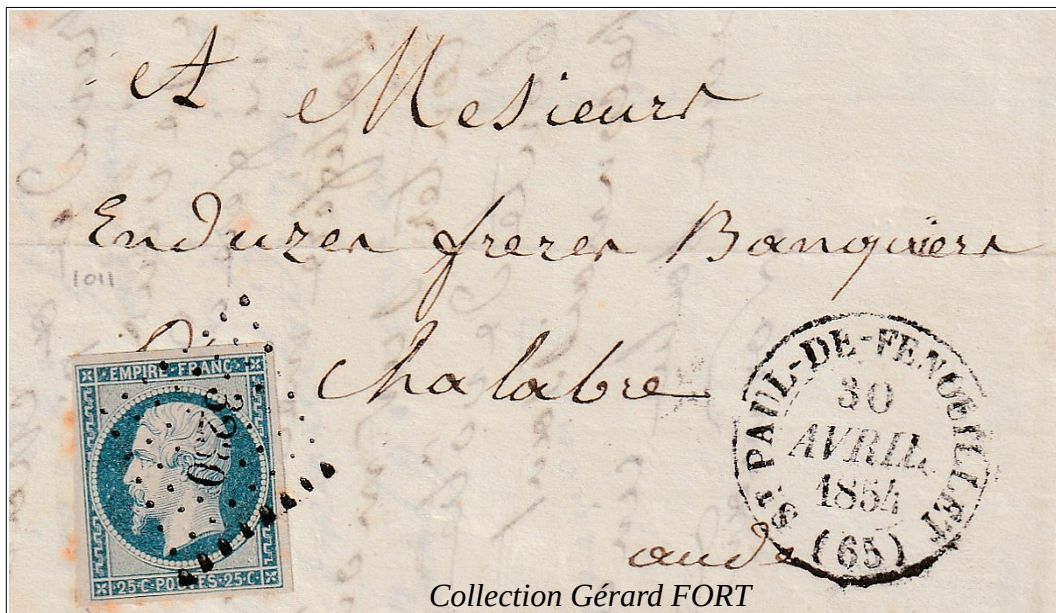 A Mesieurs
Enduzer frerer Banquiers
1011
Chalabre
EMPIRE-FRANC
25·C·POSTES·25·C
ST PAUL-DE-FENOUILLET
30
AVRIL
1854
(65)
aude
Collection Gérard FORT